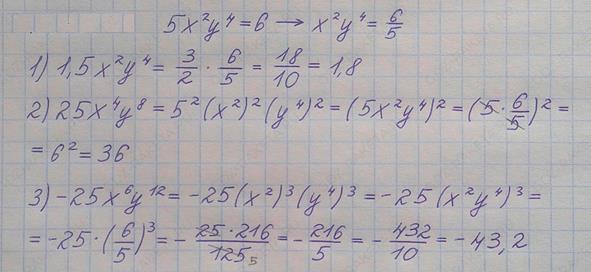 5x²y⁴ = 6 → x²y⁴ = 6/5
1) 1,5x²y⁴ = 3/2 · 6/5 = 18/10 = 1,8
2) 25x⁴y⁸ = 5²(x²)²(y⁴)² = (5x²y⁴)² = (5 · 6/5)² =
= 6² = 36
3) -25x⁶y¹² = -25(x²)³(y⁴)³ = -25(x²y⁴)³ =
= -25 · (6/5)³ = - 25·216/125 5 = - 216/5 = - 432/10 = -43,2